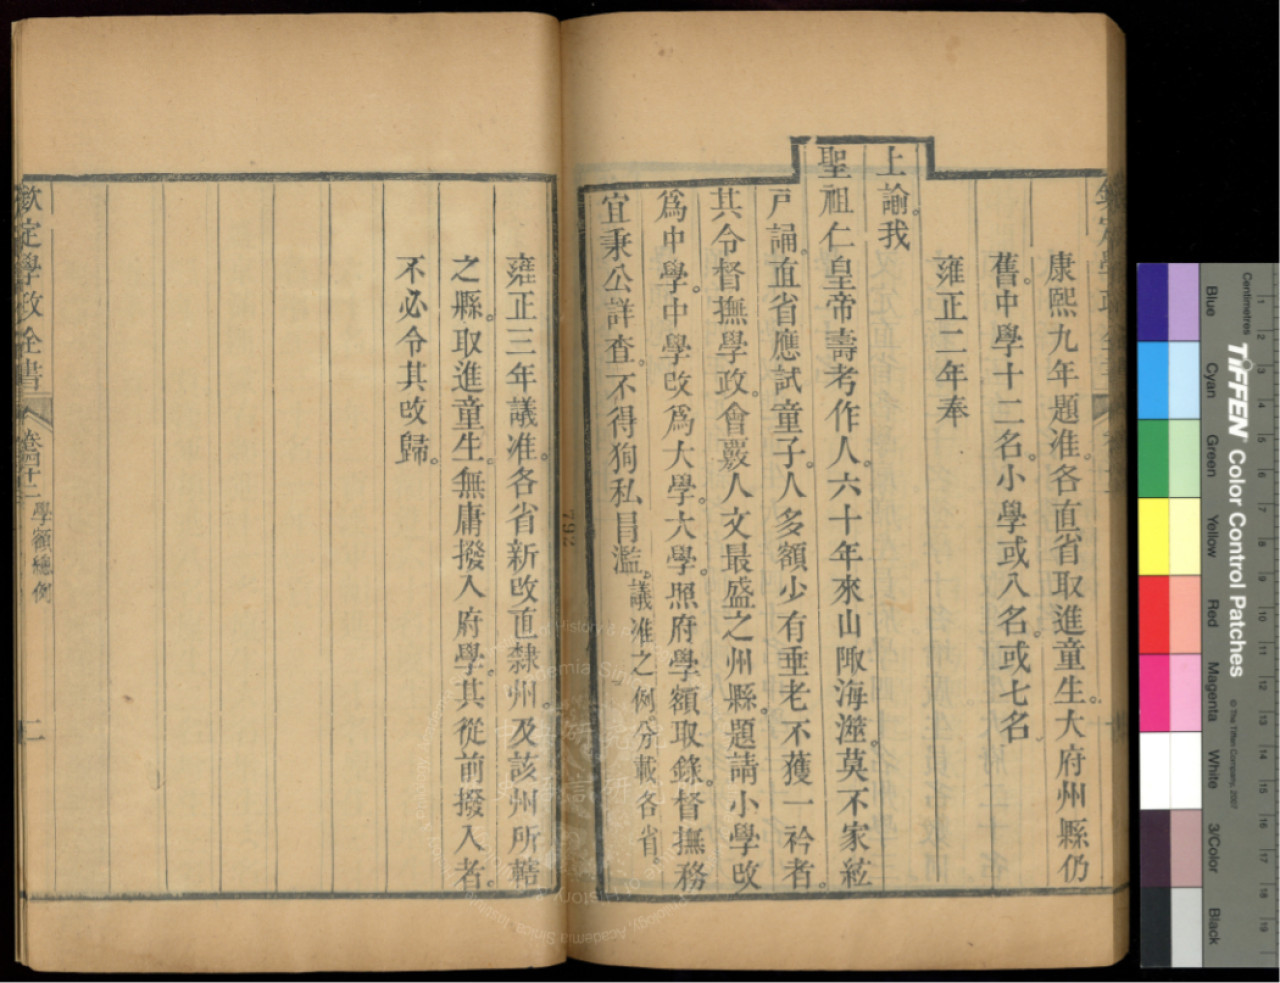 康熙九年題准。各直省取進童生。大府州縣仍
舊。中學十二名。小學或八名。或七名
雍正二年奉
上諭。我
聖祖仁皇帝壽考作人。六十年來山陬海澨。莫不家絃
戶誦。直省應試童子。人多額少有垂老不獲一衿者。
其令督撫學政。會覈人文最盛之州縣。題請小學改
爲中學。中學改爲大學。大學。照府學額取錄。督撫務
宜秉公詳查。不得狥私冒濫。議准之例。分載各省。
雍正三年議准。各省新改直隸州。及該州所轄
之縣。取進童生。無庸撥入府學。其從前撥入者。
不必令其改歸。
欽定學政全書 卷四十二 學額總例 二
792
Centimetres
TIFFEN Color Control Patches
© The Tiffen Company, 2007
Blue Cyan Green Yellow Red Magenta White 3/Color Black
1 2 3 4 5 6 7 8 9 10 11 12 13 14 15 16 17 18 19